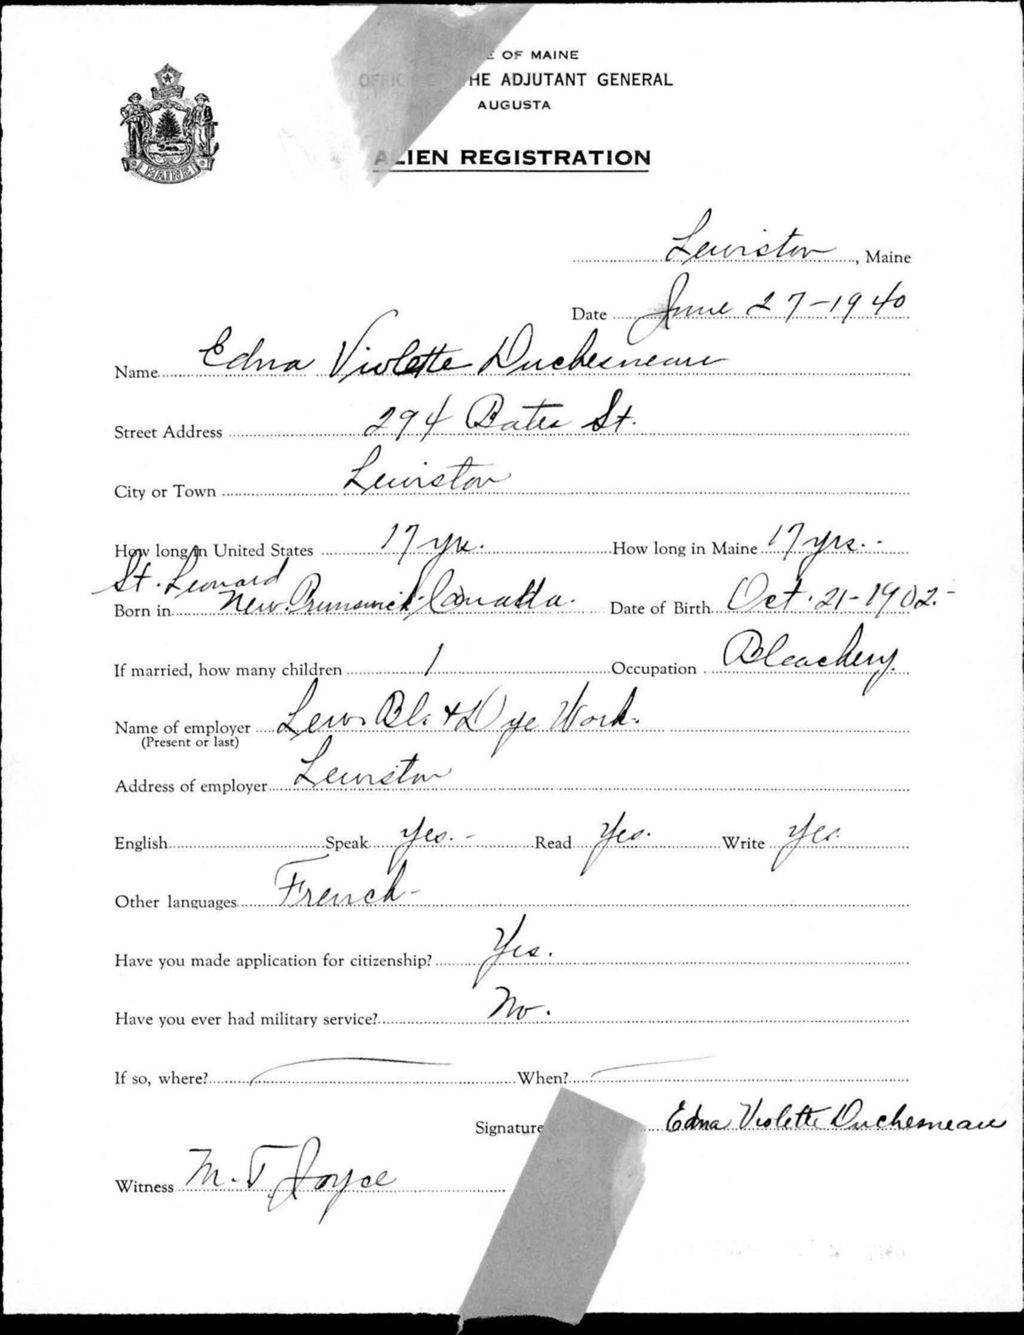 E OF MAINE
OFFIC HE ADJUTANT GENERAL
AUGUSTA
ALIEN REGISTRATION
MAINE
Lewiston, Maine
Date June 27-1940
Name Edna Violette Duchesneau
Street Address 294 Bates St.
City or Town Lewiston
How long in United States 17 yrs. How long in Maine 17 yrs. -
St. Leonard
Born in New Brunswick Canada. Date of Birth Oct. 21-1902.-
If married, how many children 1 Occupation Bleachery.
Name of employer Lew. Bl. & Dye Work.
(Present or last)
Address of employer Lewiston
English Speak Yes. - Read Yes. Write Yes
Other languages French-
Have you made application for citizenship? Yes.
Have you ever had military service? No.
If so, where? When?
Signature Edna Violette Duchesneau
Witness M. T. Joyce